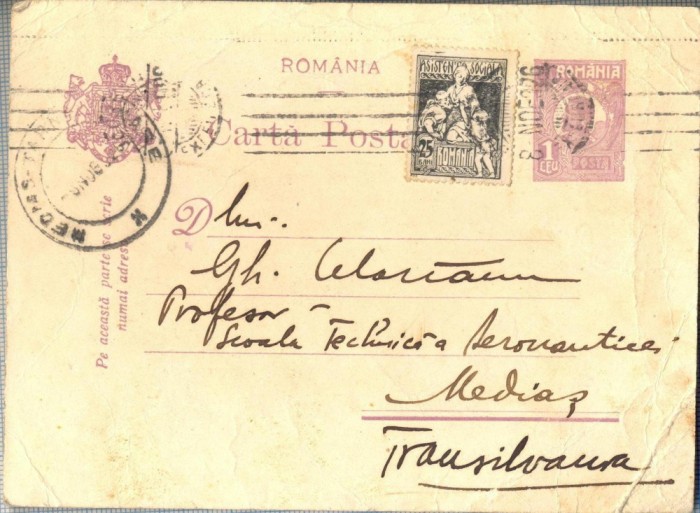 ROMÂNIA
Carta Posta
ASISTENȚA SOCIALĂ
25
BANI
ROMANIA
ROMANIA
1 LEU
POSTA
MEDIAȘ
Pe această parte se scrie
numai adresa
Dlui.
Gh.
Profesor –
Școala Technică a Aeronauticei
Mediaș
Transilvania